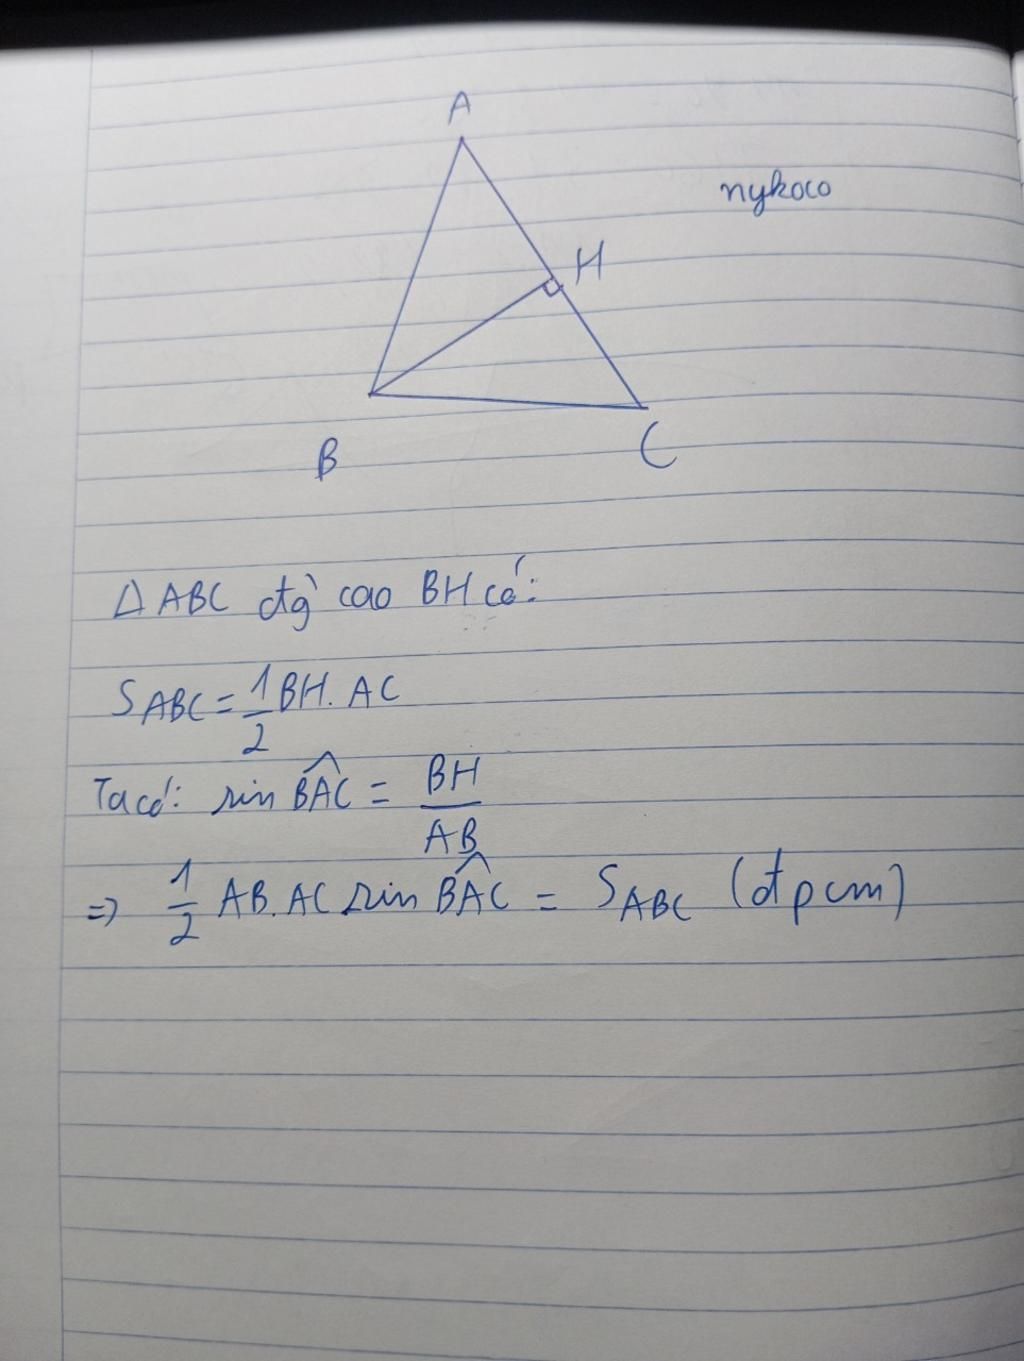 A
nykoco
H
B
C
Δ ABC đg` cao BH có:
S ABC = 1/2 BH. AC
Ta có: sin BÂC = BH/AB
=> 1/2 AB. AC sin BÂC = S ABC (đpcm)